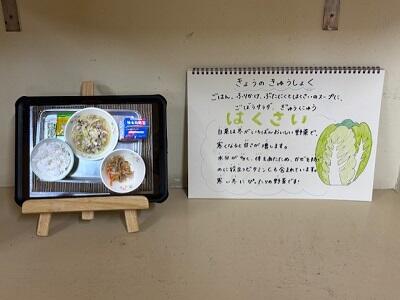 きょうの きゅうしょく
ごはん、ふりかけ、ぶたにくとはくさいのスープに、
ごぼうサラダ、ぎゅうにゅう
はくさい
白菜は冬がいちばんおいしい野菜で、
寒くなると甘さが増します。
水分が多く、体をあたため、かぜを防
ぐのに役立つビタミンCも含まれています。
寒い冬にぴったりの野菜です!